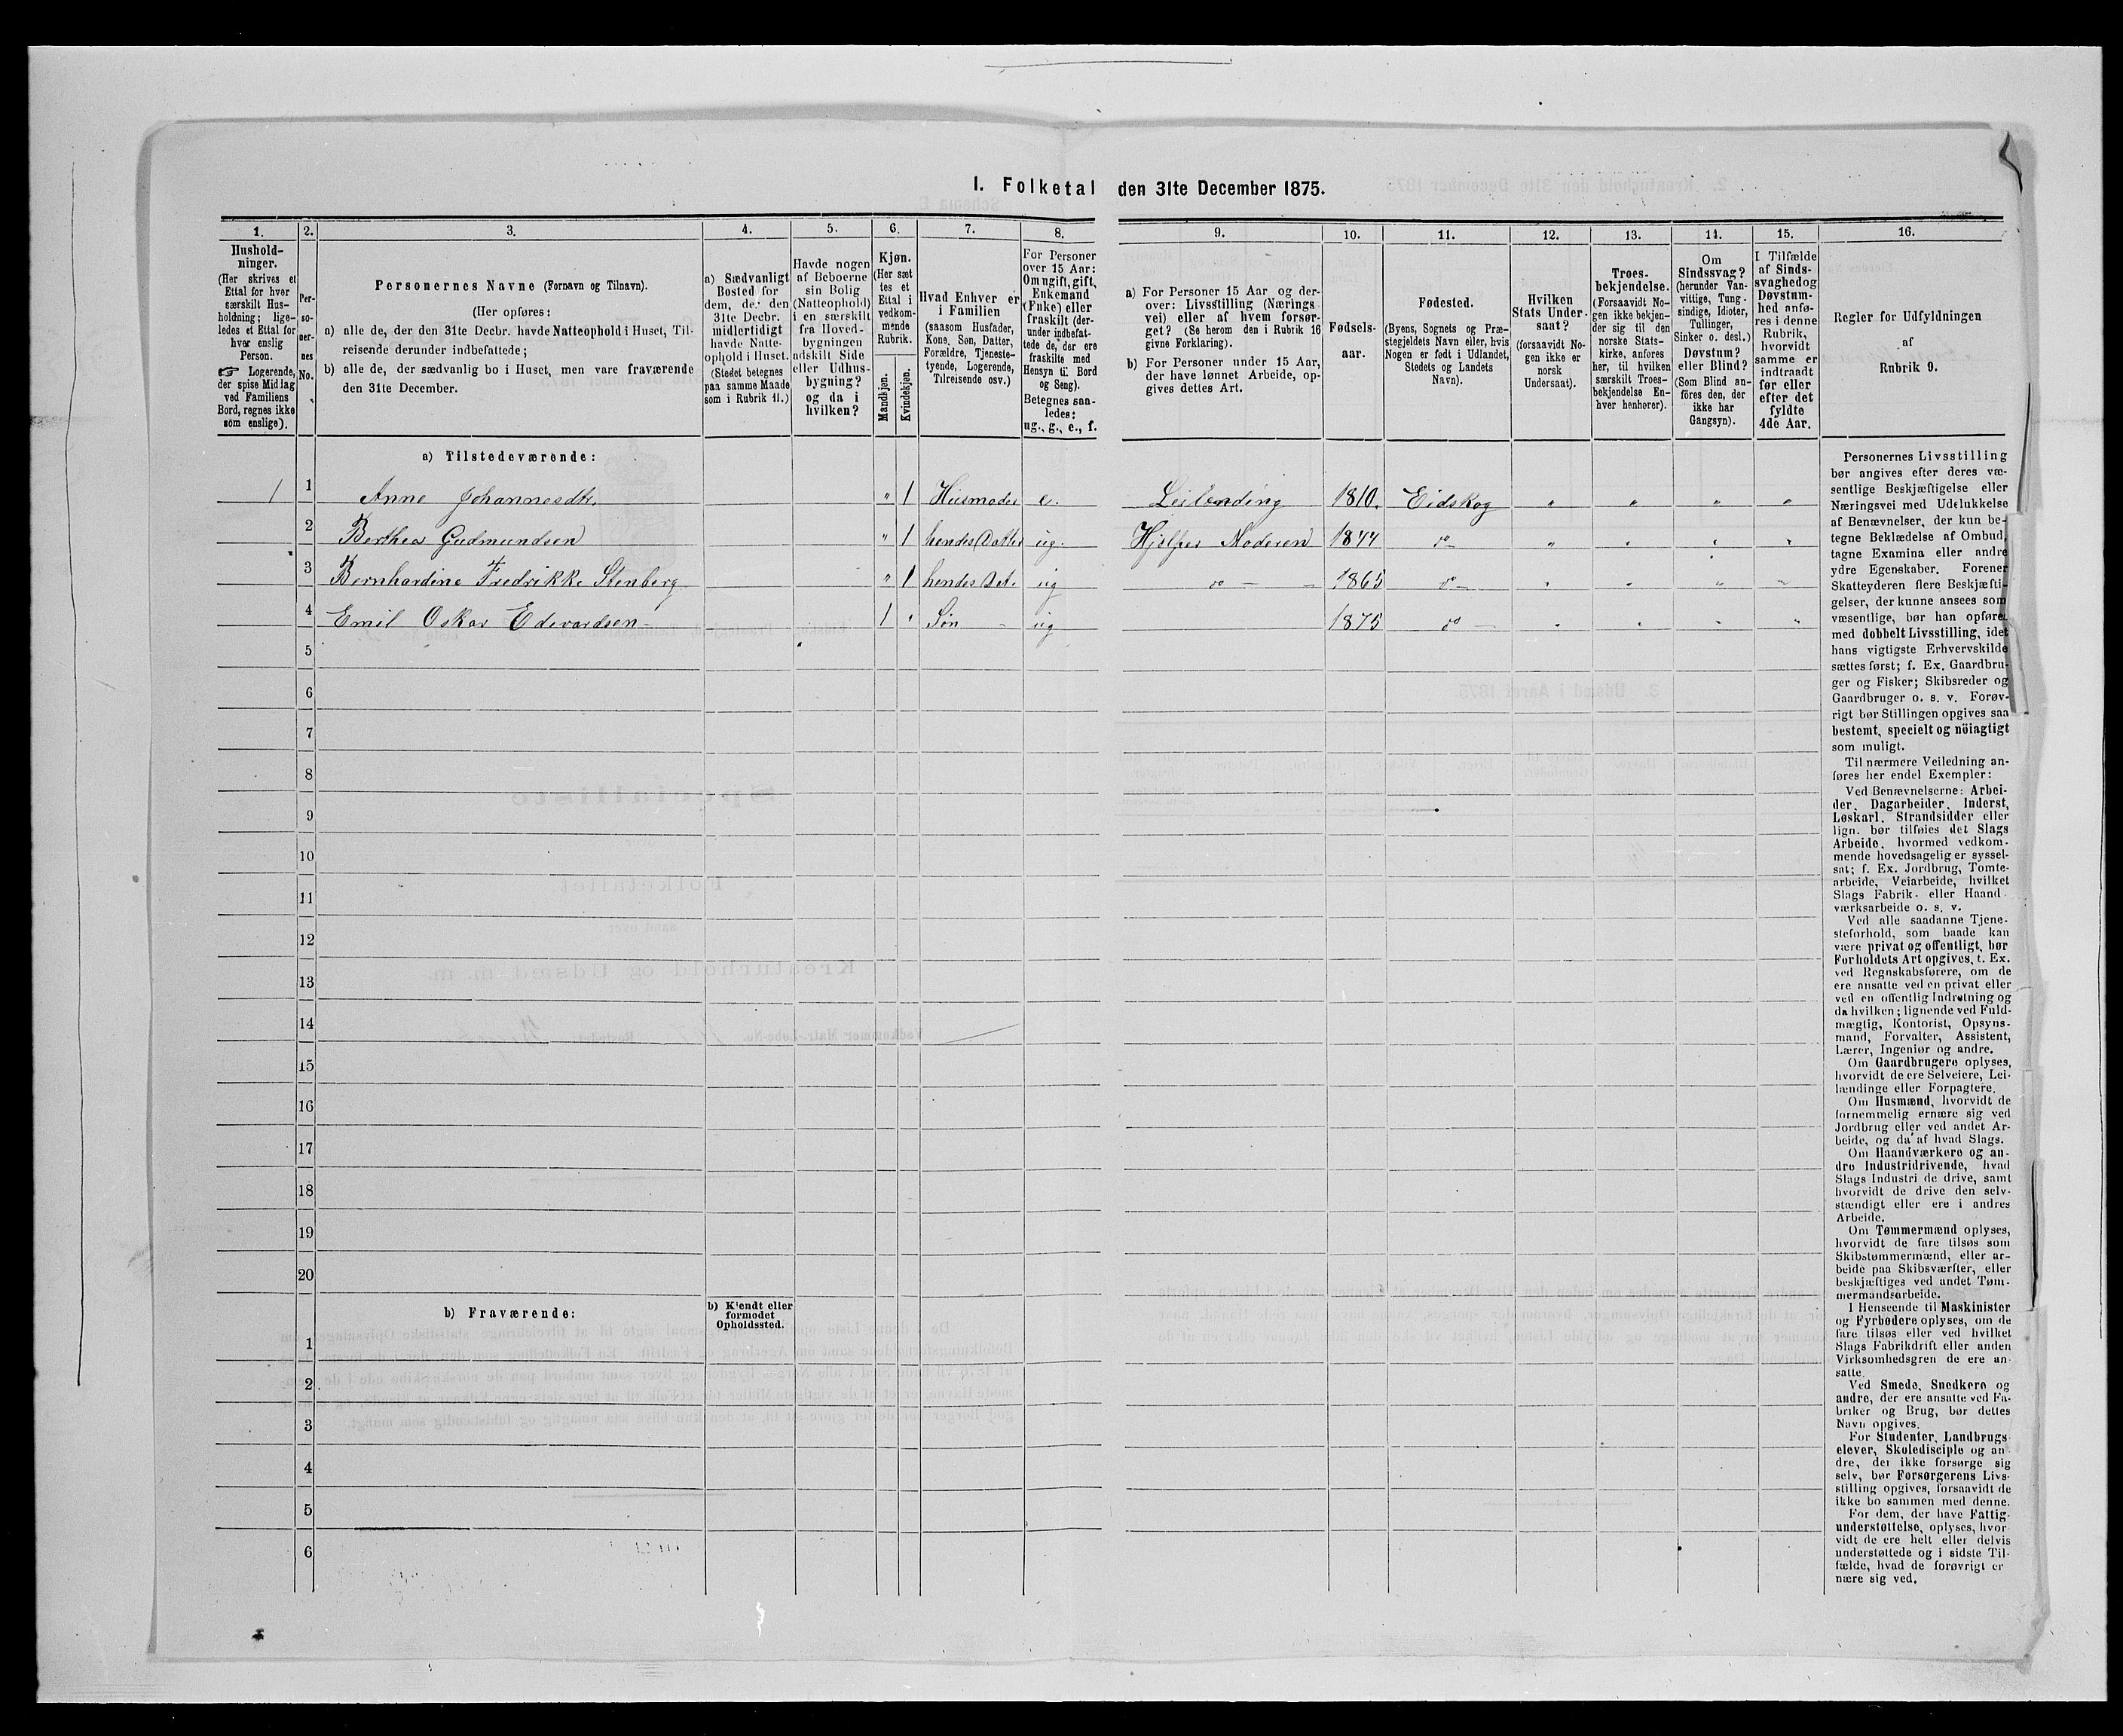 I. Folketal den 31te December 1875.
1.
2.
3.
4.
5.
6.
7.
8.
9.
10.
11.
12.
13.
14.
15.
16.
Hushold-
ninger.
(Her skrives et
Ettal for hver
særskilt Hus-
holdning; lige-
ledes et Ettal for
hver enslig
Person.
☞ Logerende,
der spise Middag
ved Familiens
Bord, regnes ikke
som enslige).
Per-
so-
ner-
nes
No.
Personernes Navne (Fornavn og Tilnavn).
(Her opføres:
a) alle de, der den 31te Decbr. havde Natteophold i Huset, Til-
reisende derunder indbefattede;
b) alle de, der sædvanlig bo i Huset, men vare fraværende
den 31te December.
a) Sædvanligt
Bosted for
dem, der den
31te Decbr.
midlertidigt
havde Natte-
ophold i Huset.
(Stedet betegnes
paa samme Maade
som i Rubrik 11.)
Havde nogen
af Beboerne
sin Bolig
(Natteophold)
i en særskilt
fra Hoved-
bygningen
adskilt Side
eller Udhus-
bygning?
og da i
hvilken?
Kjøn.
(Her sæt
tes et
Ettal i
vedkom-
mende
Rubrik.
Mandkjøn.
Kvindekjøn.
Hvad Enhver er
i Familien
(saasom Husfader,
Kone, Søn, Datter,
Forældre, Tjeneste-
tyende, Logerende,
Tilreisende osv.)
For Personer
over 15 Aar:
Om ugift, gift,
Enkemand
(Enke) eller
fraskilt (der-
under indbefat-
tede de, der ere
fraskilte med
Hensyn til Bord
og Seng).
Betegnes saa-
ledes:
ug., g., e., f.
a) For Personer 15 Aar og der-
over: Livsstilling (Nærings
vei) eller af hvem forsør-
get? (Se herom den i Rubrik 16
givne Forklaring).
b) For Personer under 15 Aar,
der have lønnet Arbeide, op-
gives dettes Art.
Fødsels-
aar.
Fødested.
(Byens, Sognets og Præ-
stegjeldets Navn eller, hvis
Nogen er født i Udlandet,
Stedets og Landets
Navn).
Hvilken
Stats Under-
saat?
(forsaavidt No-
gen ikke er
norsk
Undersaat).
Troes-
bekjendelse.
(Forsaavidt No-
gen ikke bekjen-
der sig til den
norske Stats-
kirke, anføres
her, til hvilken
særskilt Troes-
bekjendelse En-
hver henhører).
Om
Sindssvag?
(herunder Van-
vittige, Tung-
sindige, Idioter,
Tullinger,
Sinker o. desl.)
Døvstum?
eller Blind?
(Som Blind an-
føres den, der
ikke har
Gangsyn).
I Tilfælde
af Sinds-
svaghed og
Døvstum-
hed anfø-
res i denne
Rubrik,
hvorvidt
samme er
indtraadt
før eller
efter det
fyldte
4de Aar.
Regler for Udfyldningen
af
Rubrik 9.
a) Tilstedeværende:
1 1 Anne Johannesdtr. " 1 Husmoder e. Leilending 1810. Eidskog " " " "
2 Berthea Gudmundsen " 1 hendes Datter ug. Hjelper Moderen 1844 do " " " "
3 Bernhardine Fredrikke Stenberg " 1 hendes Dat. ug do 1865 do " " " "
4 Emil Oskar Edevardsen 1 " Søn ug 1875 do " " " "
5
6
7
8
9
10
11
12
13
14
15
16
17
18
19
20
b) Fraværende:
b) Kjendt eller
formodet
Opholdssted.
1
2
3
4
5
6
Personernes Livsstilling
bør angives efter deres væ-
sentlige Beskjæftigelse eller
Næringsvei med Udelukkelse
af Benævnelser, der kun be-
tegne Beklædelse af Ombud,
tagne Examina eller andre
ydre Egenskaber. Forener
Skatteyderen flere Beskjæfti-
gelser, der kunne ansees som
væsentlige, bør han opføres
med dobbelt Livsstilling, idet
hans vigtigste Erhvervskilde
sættes først; f. Ex. Gaardbru-
ger og Fisker; Skibsreder og
Gaardbruger o. s. v. Forøv-
rigt bør Stillingen opgives saa
bestemt, specielt og nöiagtigt
som muligt.
Til nærmere Veiledning an-
føres her endel Exempler:
Ved Benævnelserne: Arbei-
der, Dagarbeider, Inderst,
Løskarl, Strandsidder eller
lign. bør tilføies det Slags
Arbeide, hvormed vedkom-
mende hovedsagelig er syssel-
sat; f. Ex. Jordbrug, Tomte-
arbeide, Veiarbeide, hvilket
Slags Fabrik- eller Haand-
værksarbeide o. s. v.
Ved alle saadanne Tjene-
steforhold, som baade kan
være privat og offentligt, bør
Forholdets Art opgives, t. Ex.
ved Regnskabsførere, om de
ere ansatte ved en privat eller
ved en offentlig Indretning og
da hvilken; lignende ved Fuld-
mægtig, Kontorist, Opsyns-
mand, Forvalter, Assistent,
Lærer, Ingeniør og andre.
Om Gaardbrugere oplyses,
hvorvidt de ere Selveiere, Lei-
lændinge eller Forpagtere.
Om Husmænd, hvorvidt de
fornemmelig ernære sig ved
Jordbrug eller ved andet Ar-
beide, og da af hvad Slags.
Om Haandværkere og an-
dre Industridrivende, hvad
Slags Industri de drive, samt
hvorvidt de drive den selv-
stændigt eller ere i andres
Arbeide.
Om Tømmermænd oplyses,
hvorvidt de fare tilsøs som
Skibstømmermænd, eller ar-
beide paa Skibsværfter, eller
beskjæftiges ved andet Tøm-
mermandsarbeide.
I Henseende til Maskinister
og Fyrbødere oplyses, om de
fare tilsøs eller ved hvilket
Slags Fabrikdrift eller anden
Virksomhedsgren de ere an-
satte.
Ved Smede, Snedkere og
andre, der ere ansatte ved Fa-
briker og Brug, bør dettes
Navn opgives.
For Studenter, Landbrugs-
elever, Skoledisciple og an-
dre, der ikke forsørge sig
selv, bør Forsørgerens Livs-
stilling opgives, forsaavidt de
ikke bo sammen med denne.
For dem, der have Fattig-
understøttelse, oplyses, hvor-
vidt de ere helt eller delvis
understøttede og i sidste Til-
fælde, hvad de forøvrigt er-
nære sig ved.